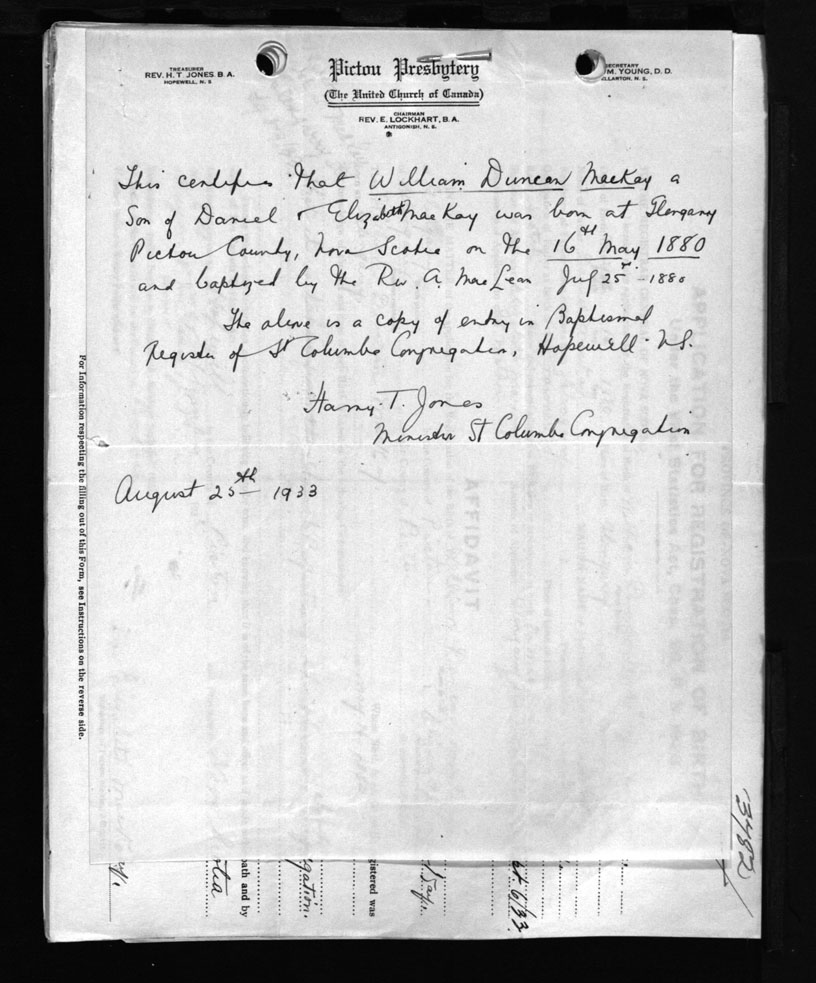 TREASURER
REV. H. T. JONES B. A.
HOPEWELL, N. S.
Pictou Presbytery
(The United Church of Canada)
CHAIRMAN
REV. E. LOCKHART, B. A.
ANTIGONISH, N. S.
SECRETARY
M. YOUNG, D. D.
LLARTON, N. S.
This certifies that William Duncan MacKay a
Son of Daniel & Elizabeth MacKay was born at Glengarry
Pictou County, Nova Scotia on the 16th May 1880
and baptized by the Rev. A. MacLean 25 - 1880
The above is a copy of entry in Baptismal
Register of St Columba Congregation, Hopewell N.S.
Harry T. Jones
Minister St Columba Congregation
August 25th 1933
For Information respecting the filling out of this Form, see Instructions on the reverse side.
APPLICATION FOR REGISTRATION OF BIRTH
AFFIDAVIT
otia
oath and by
gation.
gistered was
6/33